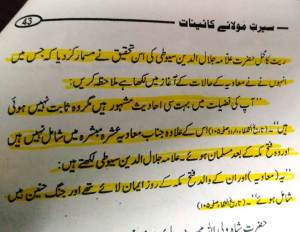 43 سیرتِ مولائے کائنات
ریت کا محل حضرت علامہ جلال الدین سیوطی کی اس تحقیق نے مسمار کر دیا کہ جس میں
انہوں نے نے معاویہ کے حالات کے آغاز میں لکھا ہے ملاحظہ کریں:
"آپ کی فضیلت میں بہت سی احادیث مشہور ہیں مگر وہ ثابت نہیں ہوتی
ہیں"۔ (تاریخ الخلفاء، اردو، ص) اس کے علاوہ جناب معاویہ عشرہ مبشرہ میں شامل نہیں ہیں
اور وہ فتح مکہ کے بعد مسلمان ہوئے۔ علامہ جلال الدین سیوطی لکھتے ہیں:
"یہ (معاویہ) اور ان کے والد فتح مکہ کے روز ایمان لائے تھے اور جنگ حنین میں
شامل ہوئے"۔ (تاریخ الخلفاء، ص)
حضرت شاہ ولی